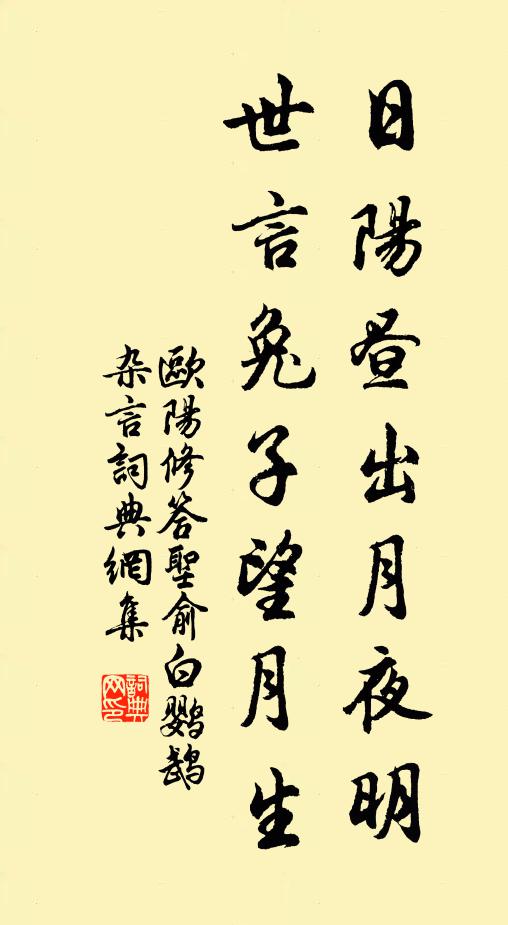 日陽晝出月夜明
世言兔子望月生
歐陽修答聖俞白鸚鵡
杂言詞典網集
詞典
网印